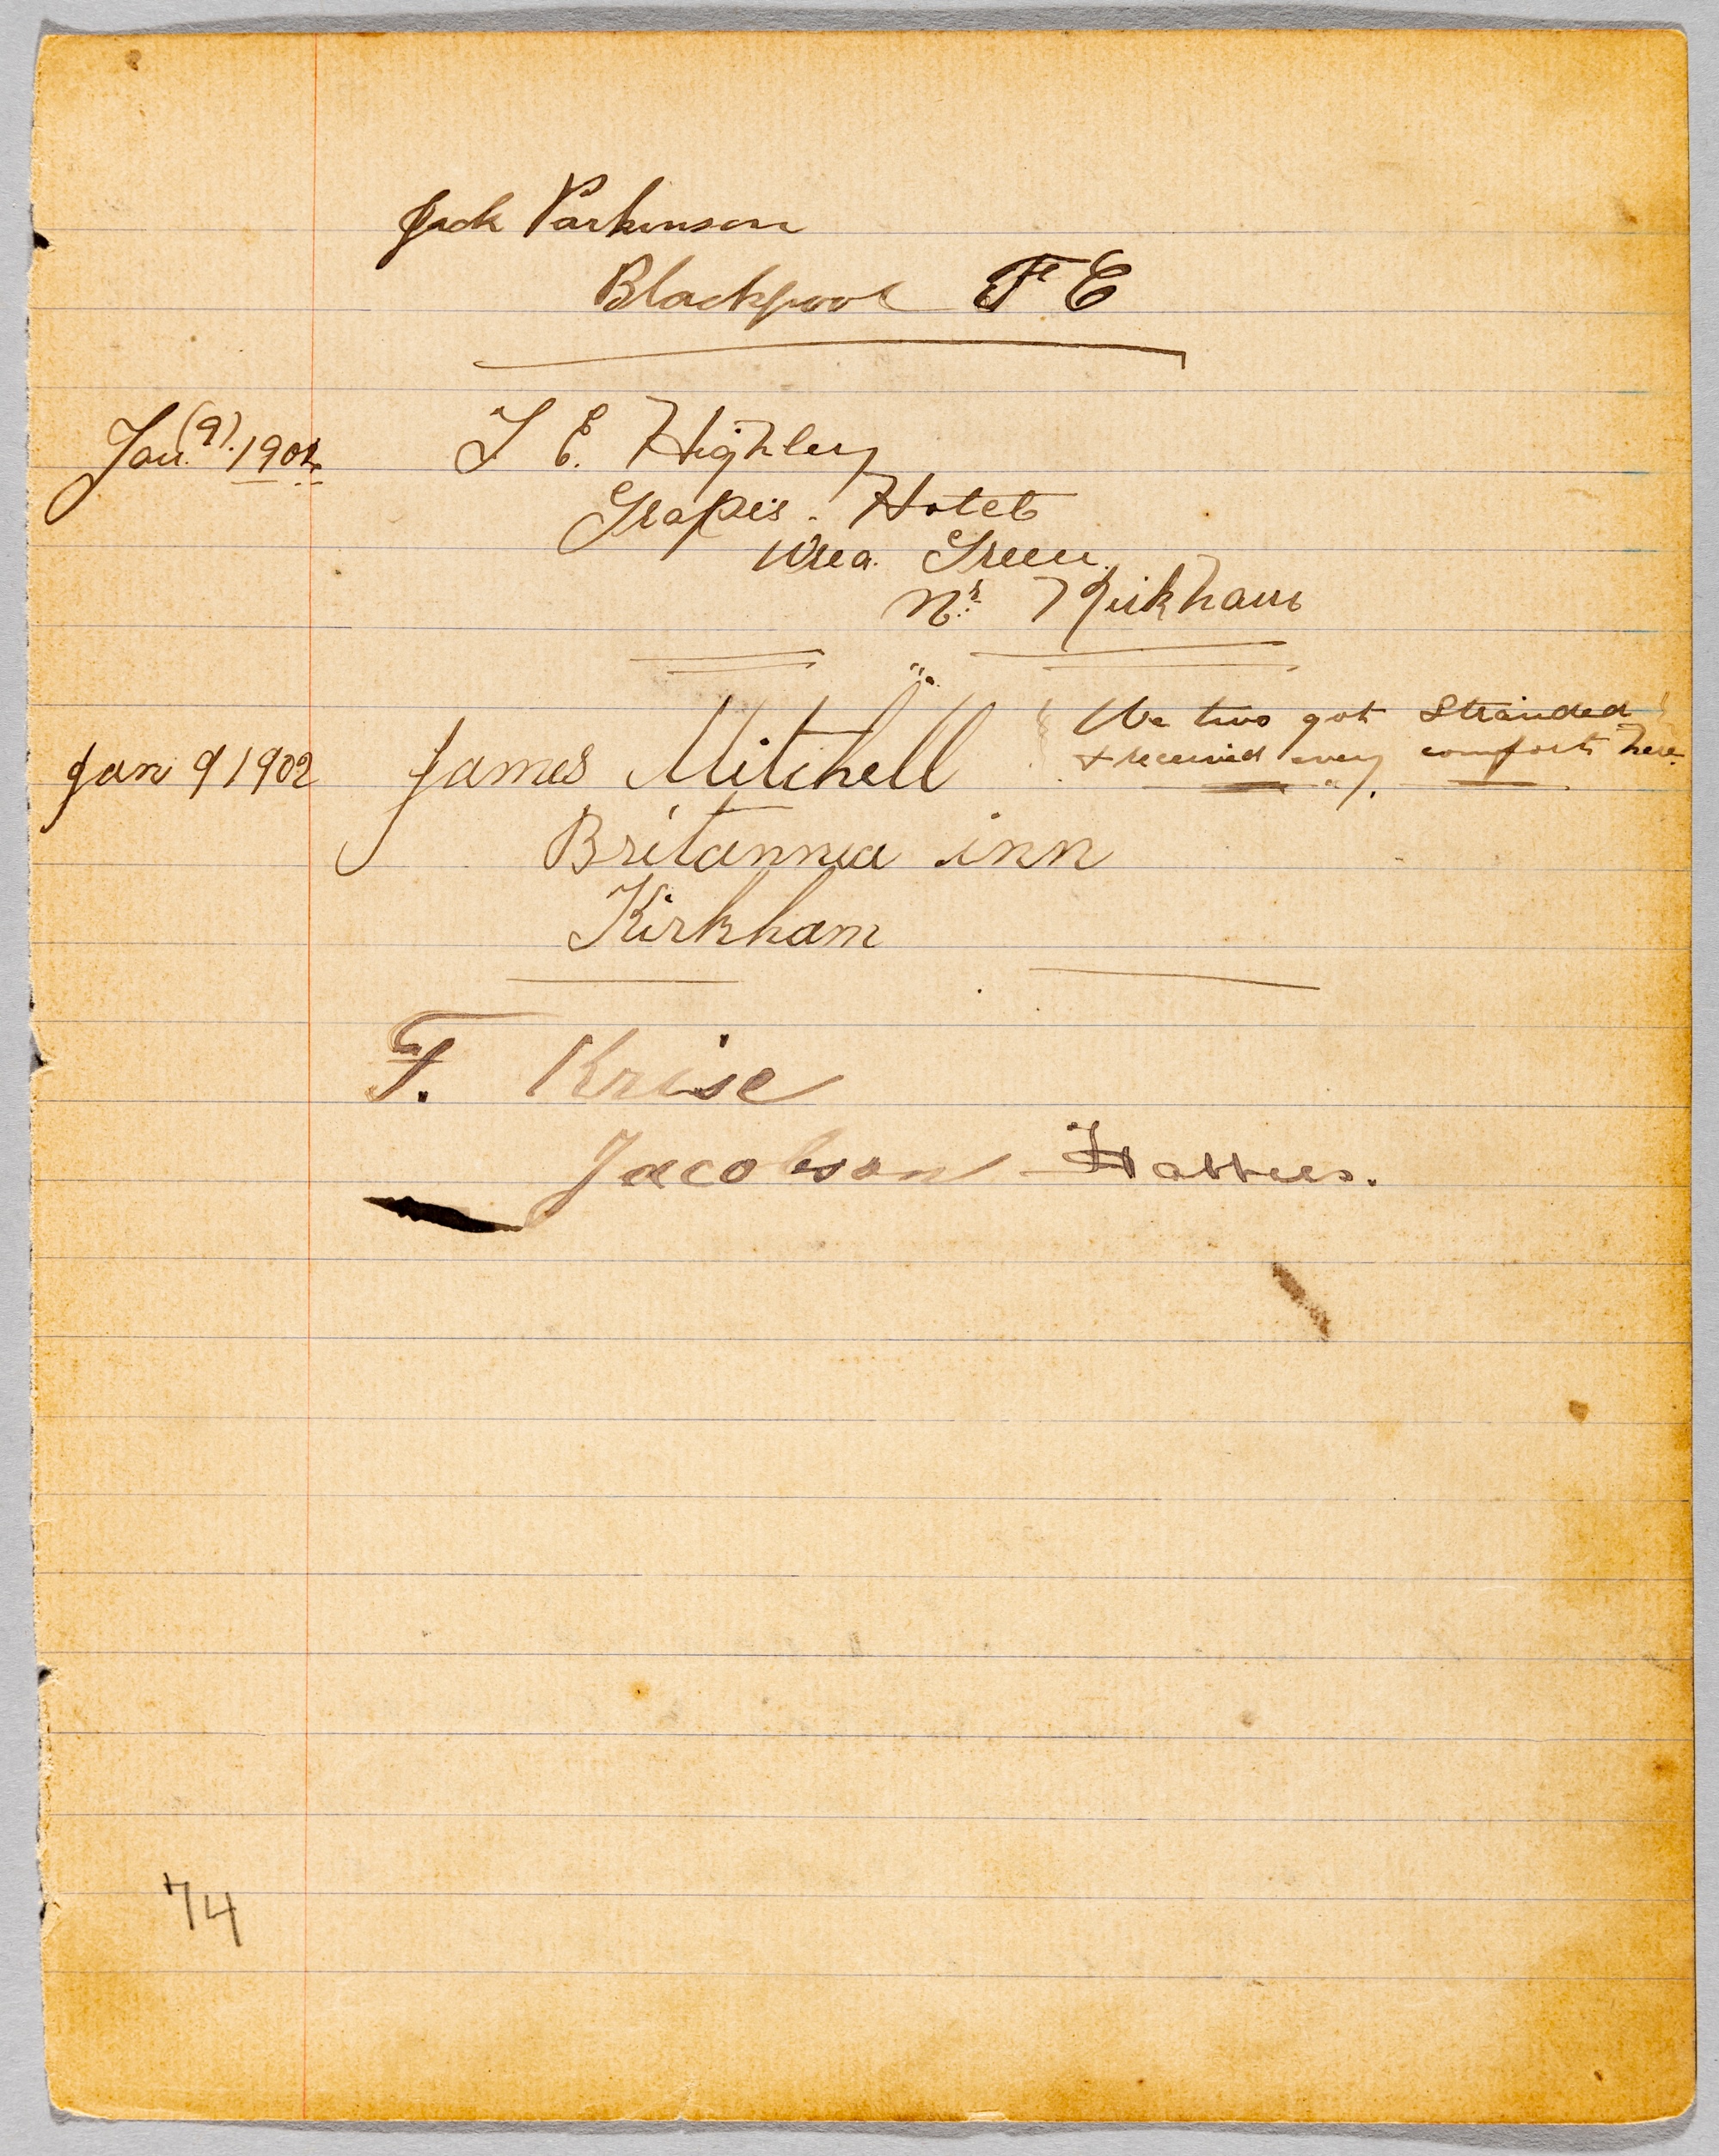 Jack Parkinson
Blackpool F C
Jan. (9). 1902 T E. Highley
Grapes. Hotel
Wrea. Green.
Nr. Kirkham
We two got Stranded
Jan 9 1902 James Mitchell & received every comfort here.
Britannia inn
Kirkham
F. Krise
Jacobson
74